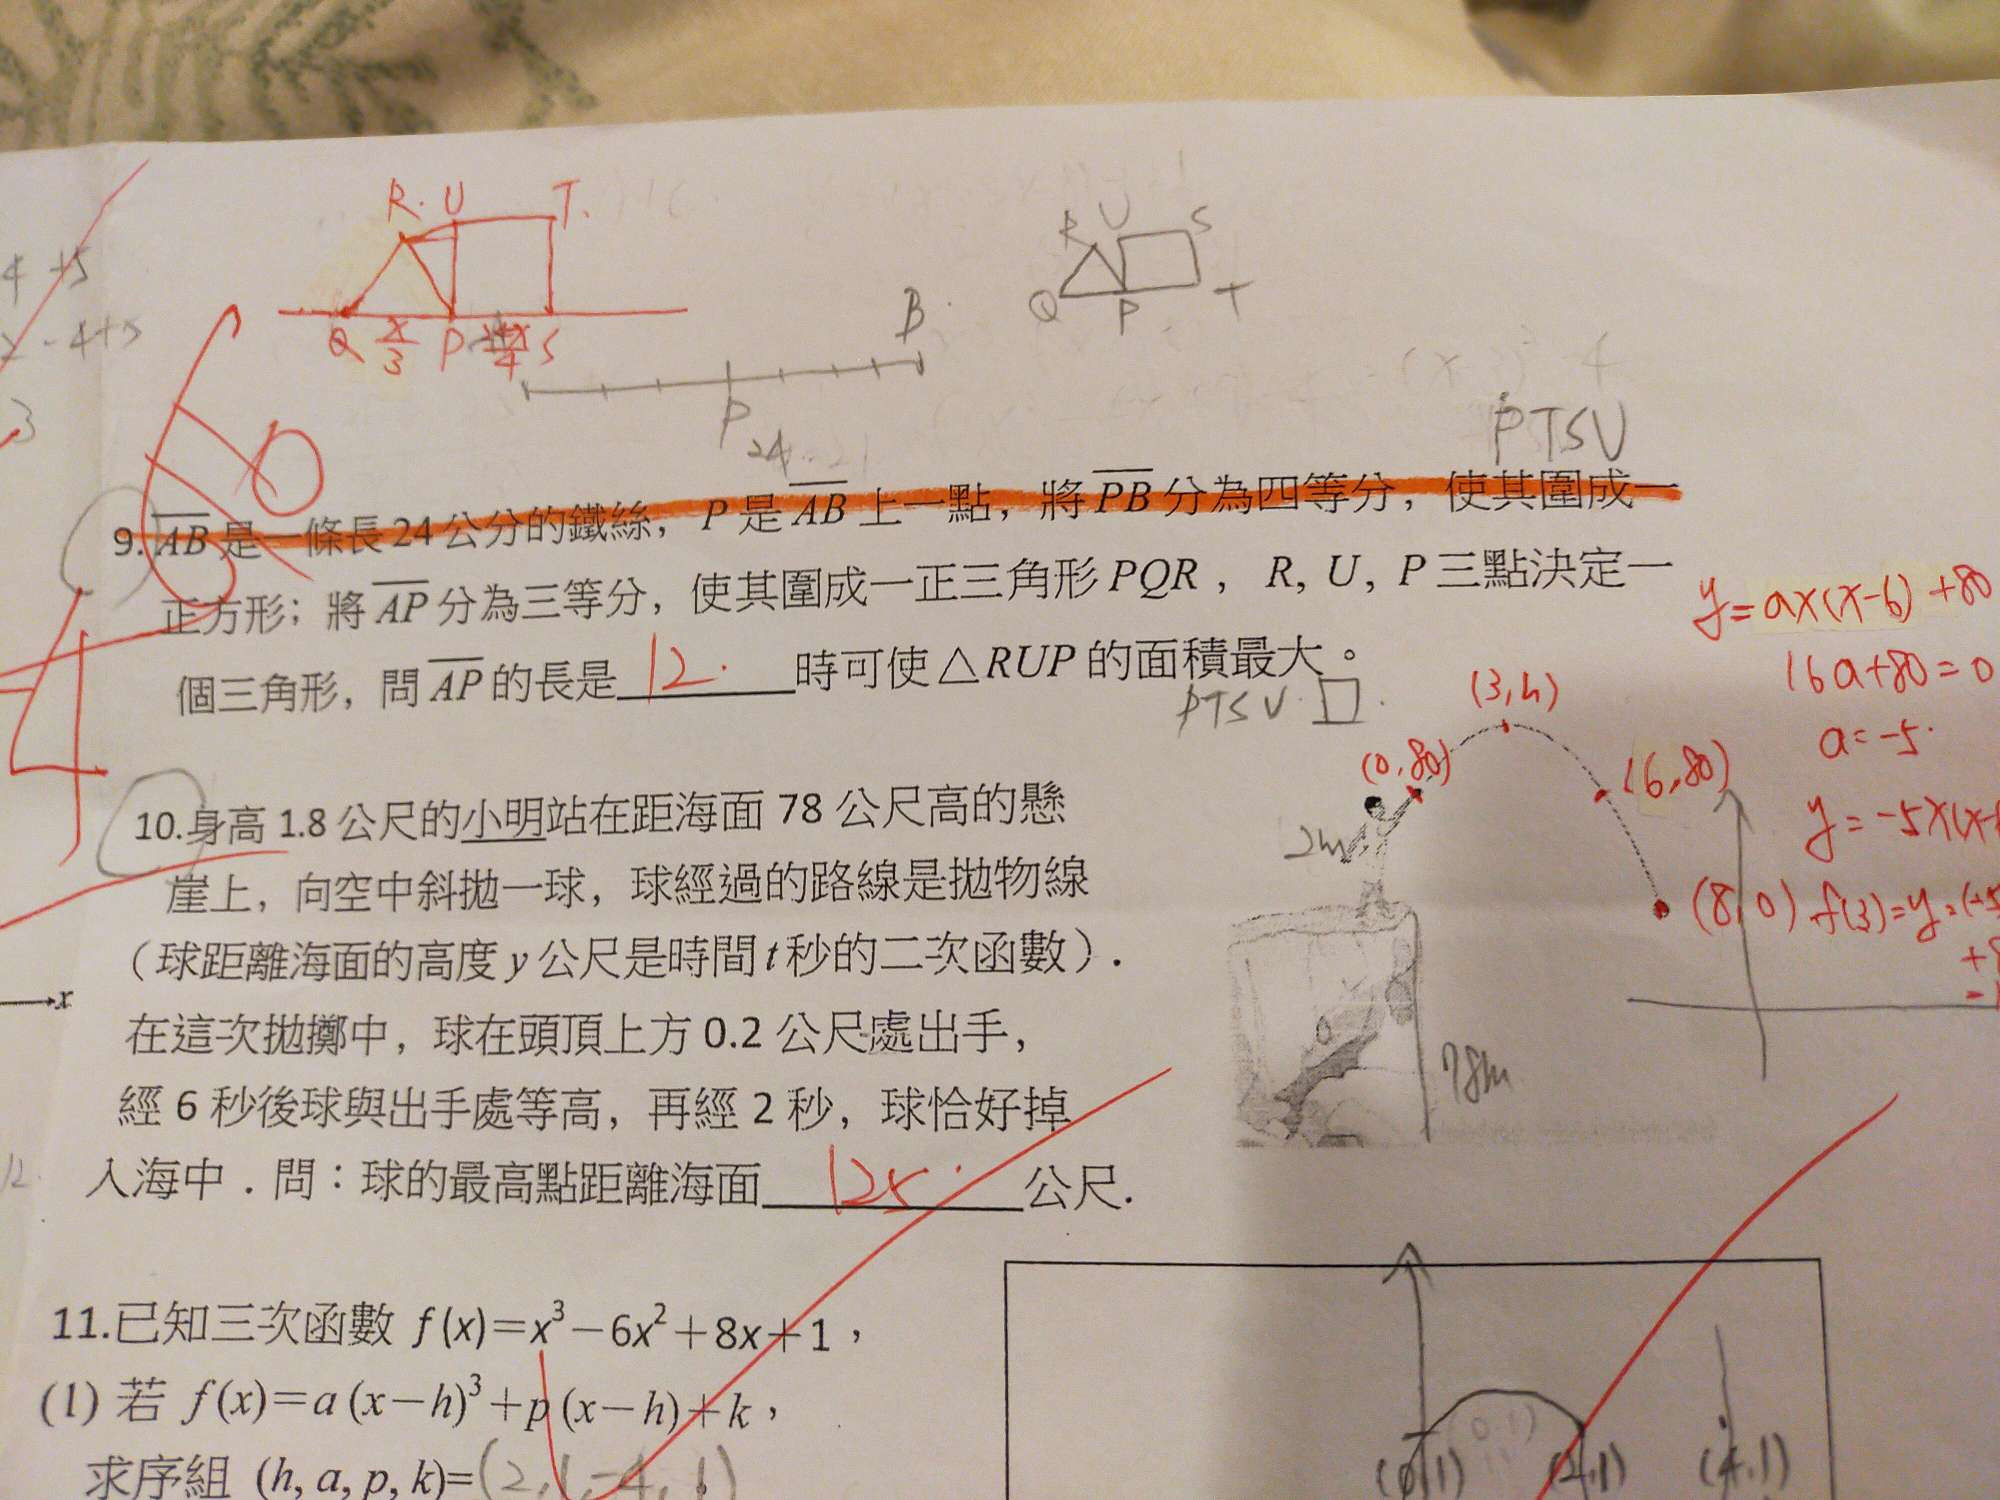 R. U T.
Q x/3 P S
R U S
Q P T
B
P
24
PTSU
9. AB 是一條長 24 公分的鐵絲，P 是 AB 上一點，將 PB 分為四等分，使其圍成一
正方形；將 AP 分為三等分，使其圍成一正三角形 PQR，R, U, P 三點決定一
個三角形，問 AP 的長是 12. 時可使 △RUP 的面積最大。
PTSU □.
y=ax(x-6)+80
16a+80=0
a=-5.
(3,h)
(0,80)
(6,80)
2m
(8,0)
78m
10.身高 1.8 公尺的小明站在距海面 78 公尺高的懸
崖上，向空中斜拋一球，球經過的路線是拋物線
（球距離海面的高度 y 公尺是時間 t 秒的二次函數）．
在這次拋擲中，球在頭頂上方 0.2 公尺處出手，
經 6 秒後球與出手處等高，再經 2 秒，球恰好掉
入海中．問：球的最高點距離海面 125. 公尺.
x
11.已知三次函數 f(x)=x³−6x²+8x+1，
(1) 若 f(x)=a(x−h)³+p(x−h)+k，
求序組 (h, a, p, k)=(2,1,-4,1)
(0,1) (2,1) (4,1)